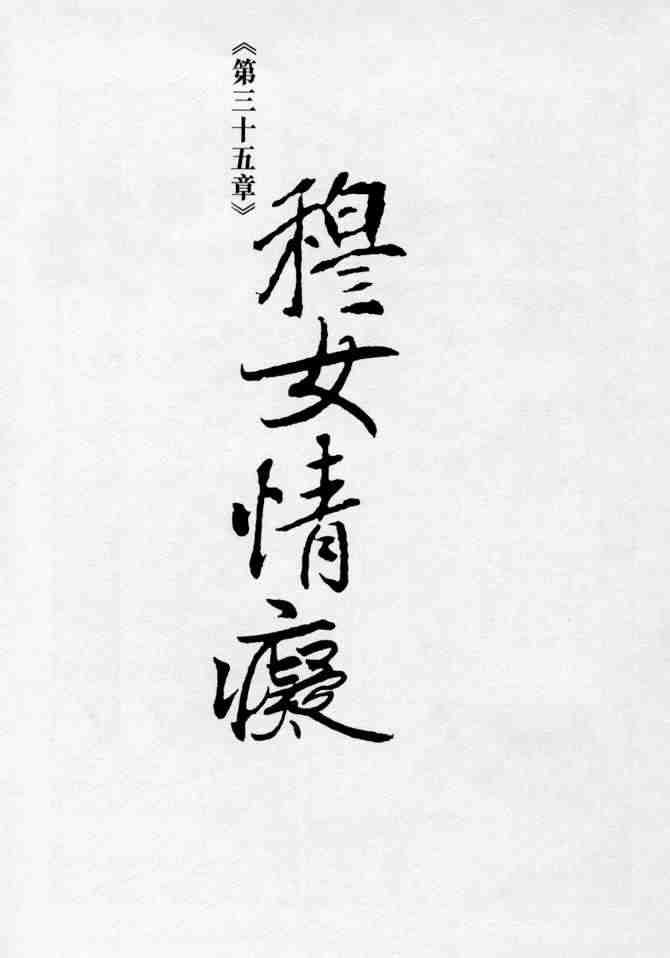 《第三十五章》
穆女情癡